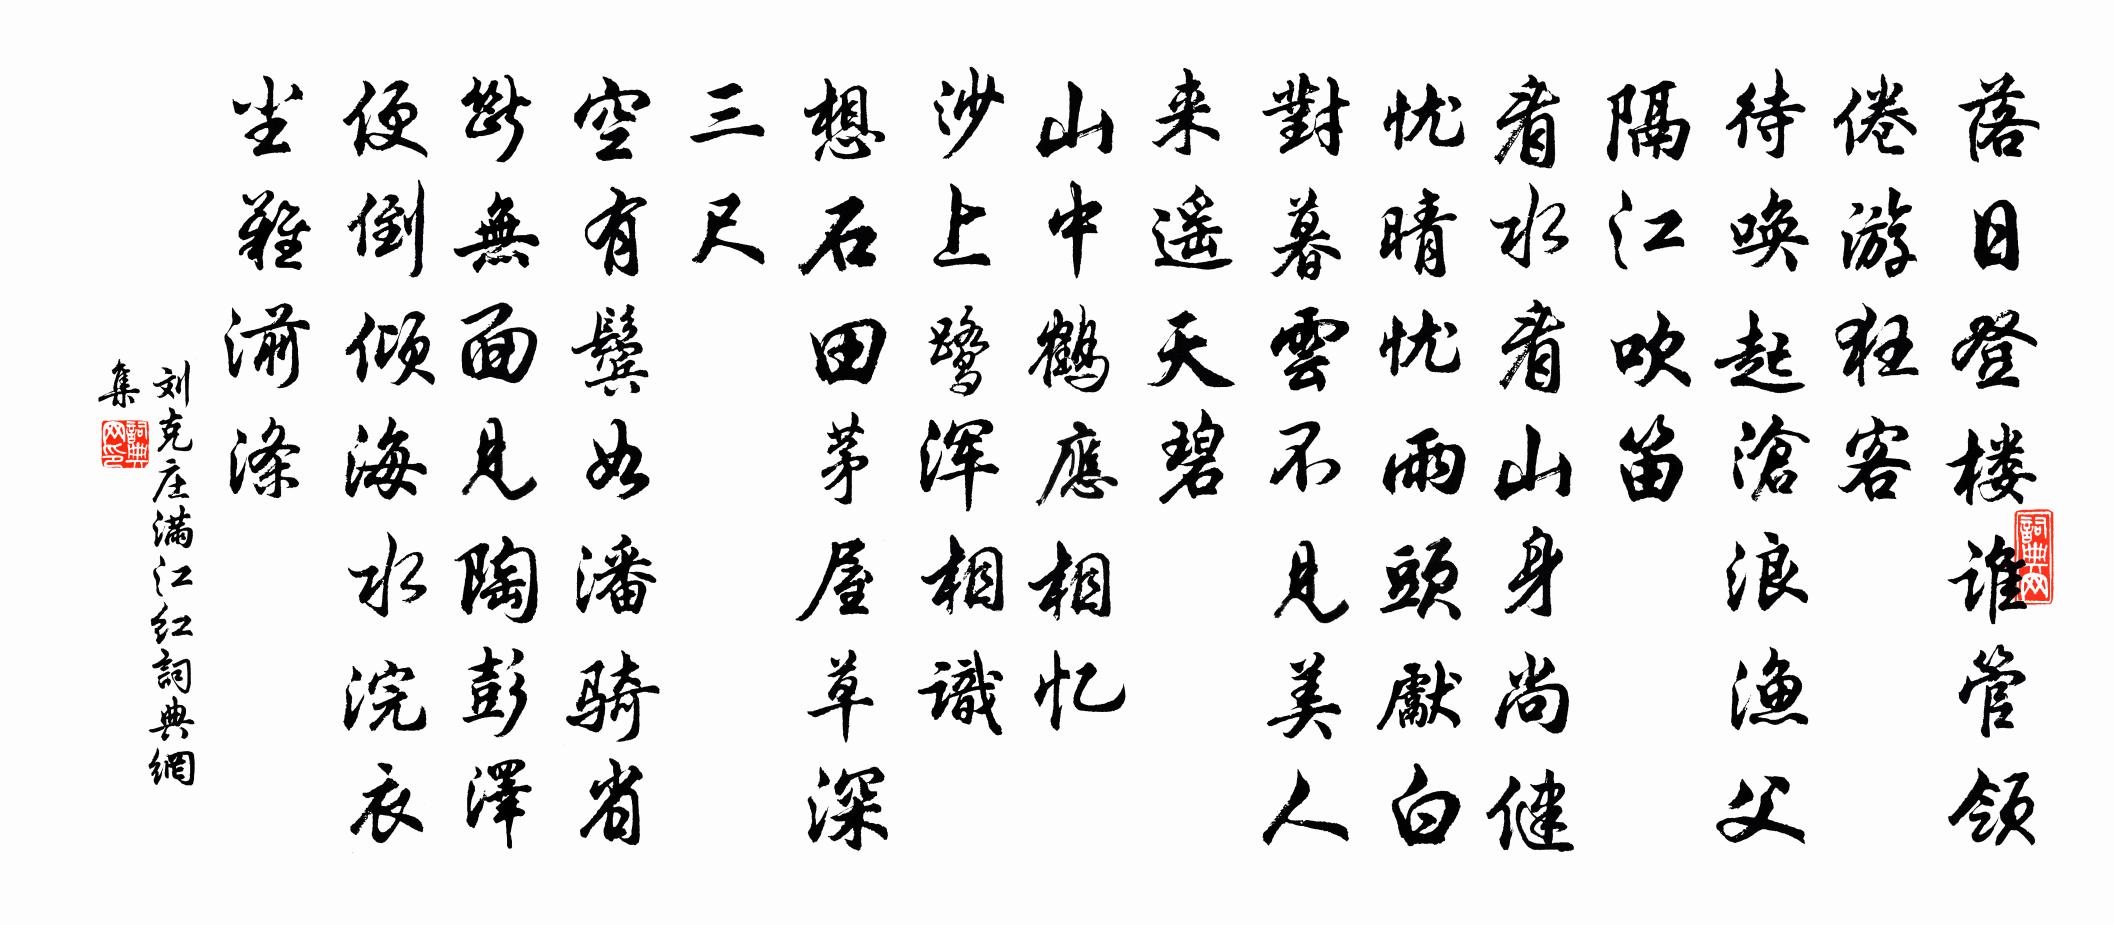 落日登楼谁管领
倦游狂客
待唤起滄浪漁父
隔江吹笛
看水看山身尚健
忧晴忧雨頭獻白
對暮雲不見美人
来遥天碧
山中鶴應相忆
沙上鹭浑相識
想石田茅屋草深
三尺
空有鬓如潘骑省
斷無面見陶彭澤
便倒倾海水浣衣
尘難湔滌
刘克庄满江红詞典網
集
詞典网
詞典网印